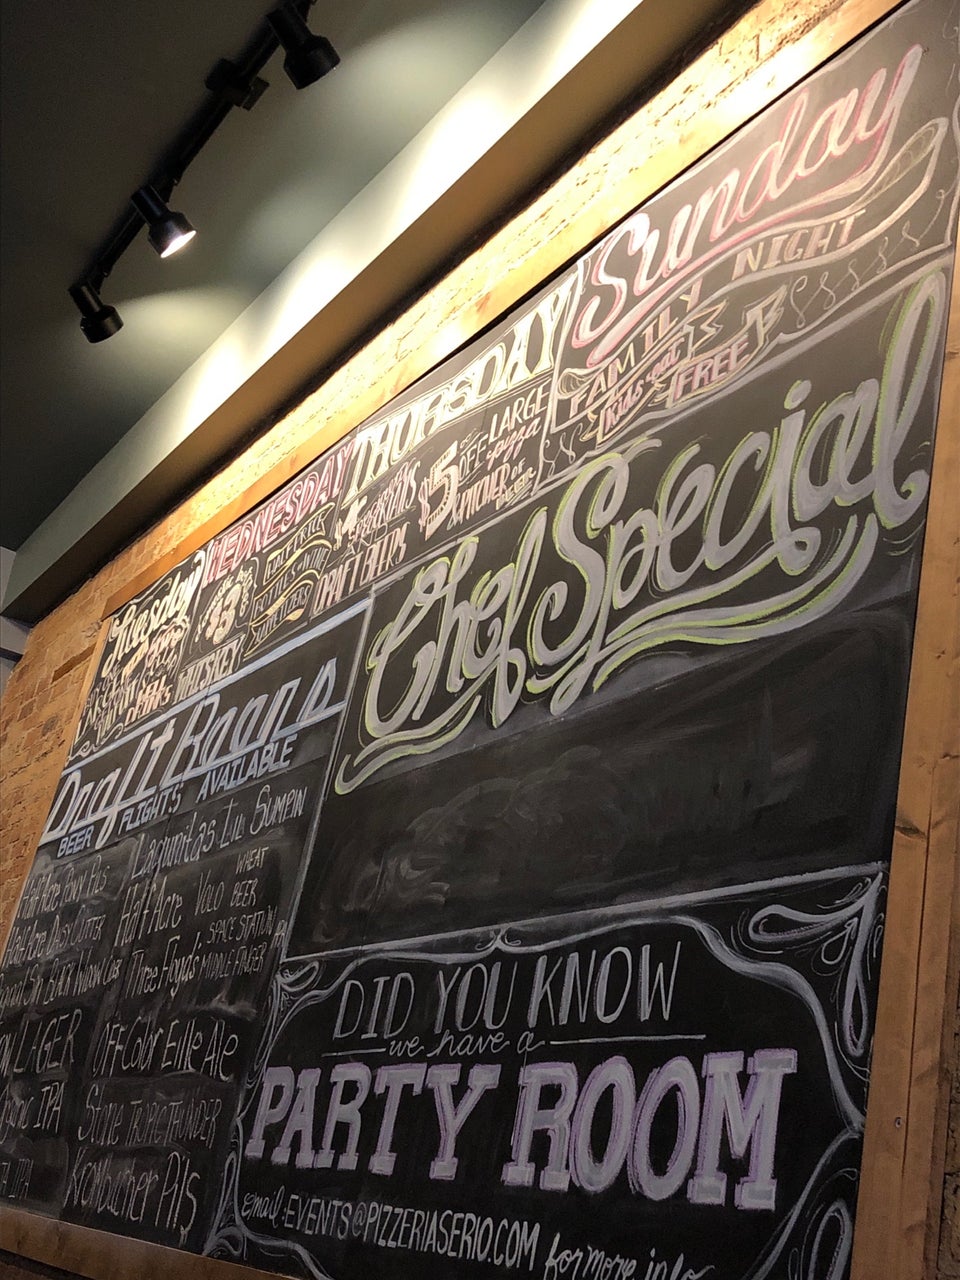 Tuesday
DRINKS
WEDNESDAY
$3
WHISKEY
BOTTLES OF WINE
APPETIZERS
THURSDAY
DRAFT BEERS
$5 OFF LARGE
pizza
& PITCHER of
BEER
Sunday
FAMILY NIGHT
Kids eat
FREE
Chef Special
Draft Beers
BEER FLIGHTS AVAILABLE
Half Acre Pony Pils
Daisy Cutter
LAGER
IPA
IPA
Lagunitas Lil SUMPIN
Half Acre VOLO WHEAT BEER
Three Floyds SPACE STATION MIDDLE FINGER
OFF Color Elle Ale
Stone TROPIC THUNDER
Krombacher Pils
DID YOU KNOW
we have a
PARTY ROOM
email: EVENTS@PIZZERIASERIO.COM for more info